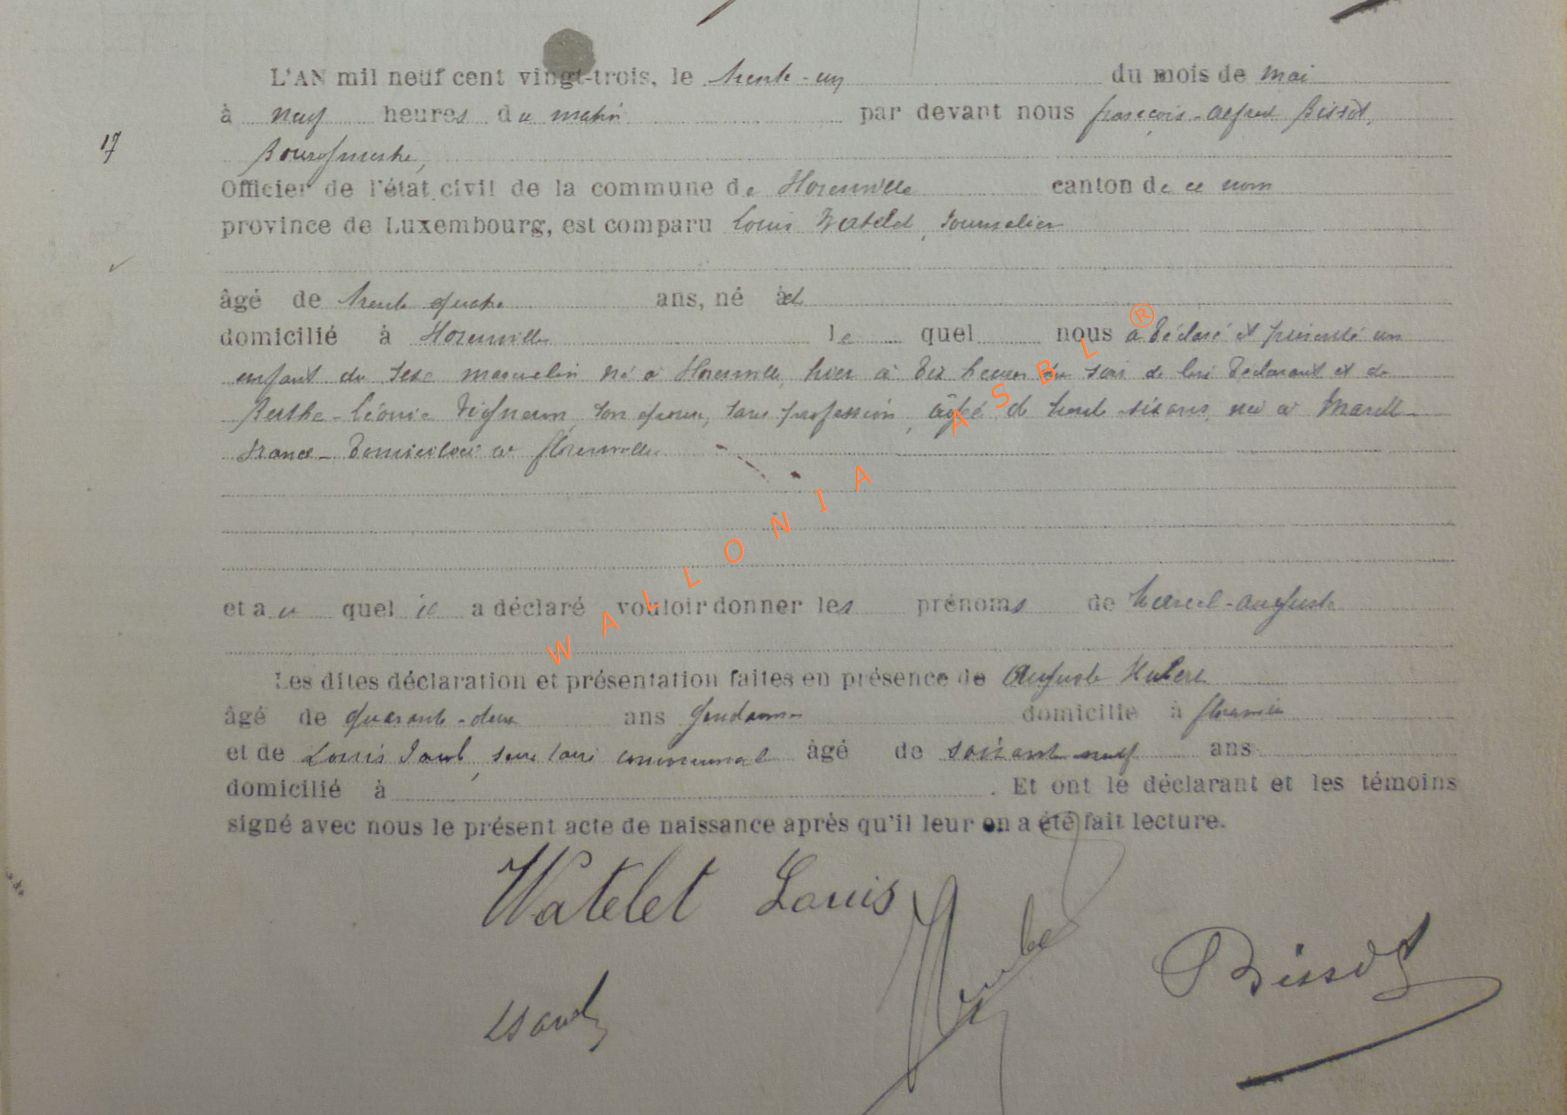 L'AN mil neuf cent vingt-trois, le trente-un du mois de mai
à neuf heures du matin par devant nous françois-Alfred Bissot,
17
Bourgmestre,
Officier de l'état civil de la commune de Florenville canton de ce nom
province de Luxembourg, est comparu Louis Watelet, Journalier
âgé de trente quatre ans, né à
domicilié à Florenville le quel nous a déclaré et présenté un
enfant du sexe masculin né à Florenville hier à dix heures du soir de lui déclarant et de
Berthe-Léonie son épouse, sans profession, âgée de trente-six ans, née à
France-domiciliée à florenville
et au quel il a déclaré vouloir donner les prénoms de Marcel-Auguste
Les dites déclaration et présentation faites en présence de Auguste Hubert
âgé de quarante-deux ans Gendarme domicilié à florenville
et de Louis secrétaire communal âgé de soixante neuf ans
domicilié à . Et ont le déclarant et les témoins
signé avec nous le présent acte de naissance après qu'il leur en a été fait lecture.
Watelet Louis
Bissot
WALLONIA ASBL ®